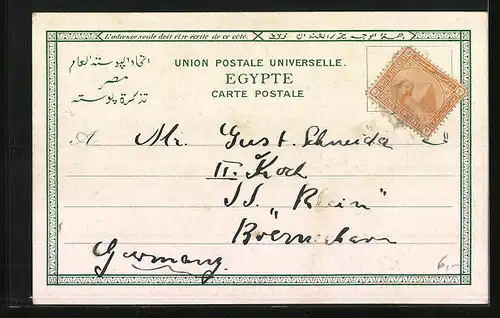 L'adresse seule doit être écrite de ce côté.
اتحاد البوسته العام
مصر
تذكرة بوسته
UNION POSTALE UNIVERSELLE.
EGYPTE
CARTE POSTALE
A Mr. Gust. Schneida
II. Koch
SS. "Rhein"
Germany.
6,-